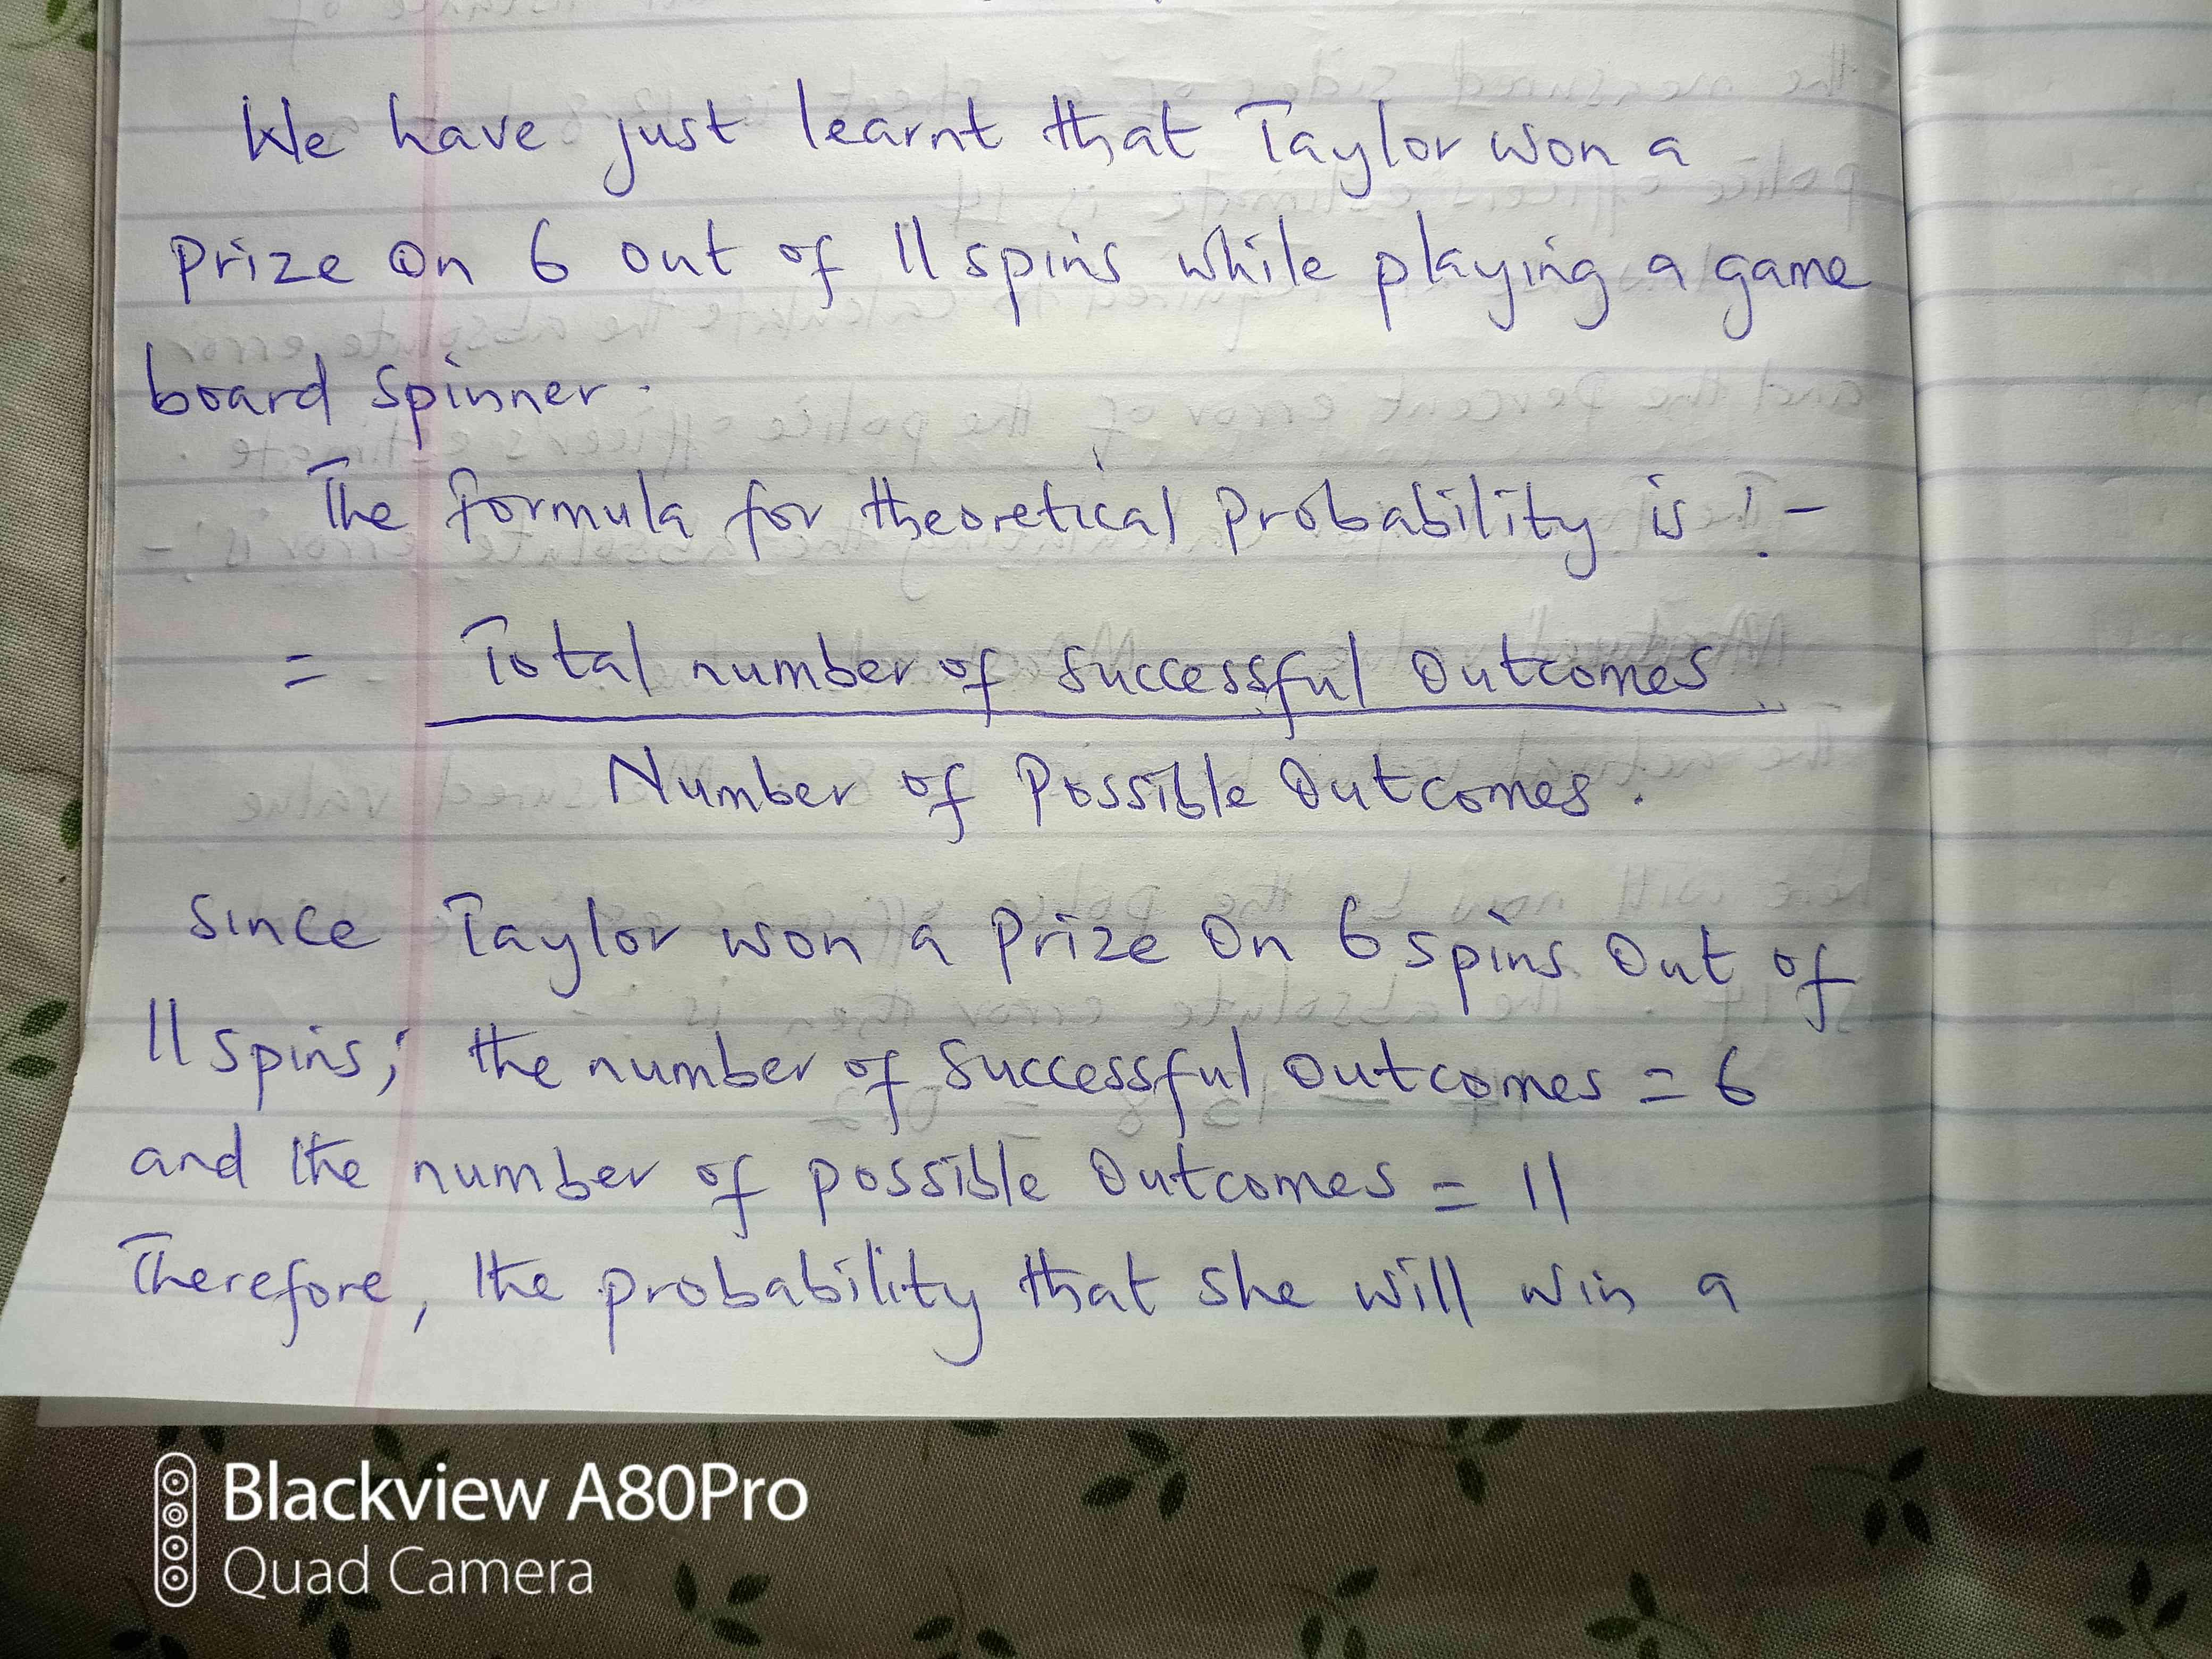 We have just learnt that Taylor won a
prize on 6 out of 11 spins while playing a game
board spinner.
The formula for theoretical probability is :-
= Total number of successful outcomes
Number of Possible Outcomes.
Since Taylor won a prize on 6 spins out of
11 spins; the number of successful outcomes = 6
and the number of possible outcomes = 11
Therefore, the probability that she will win a
Blackview A80Pro
Quad Camera